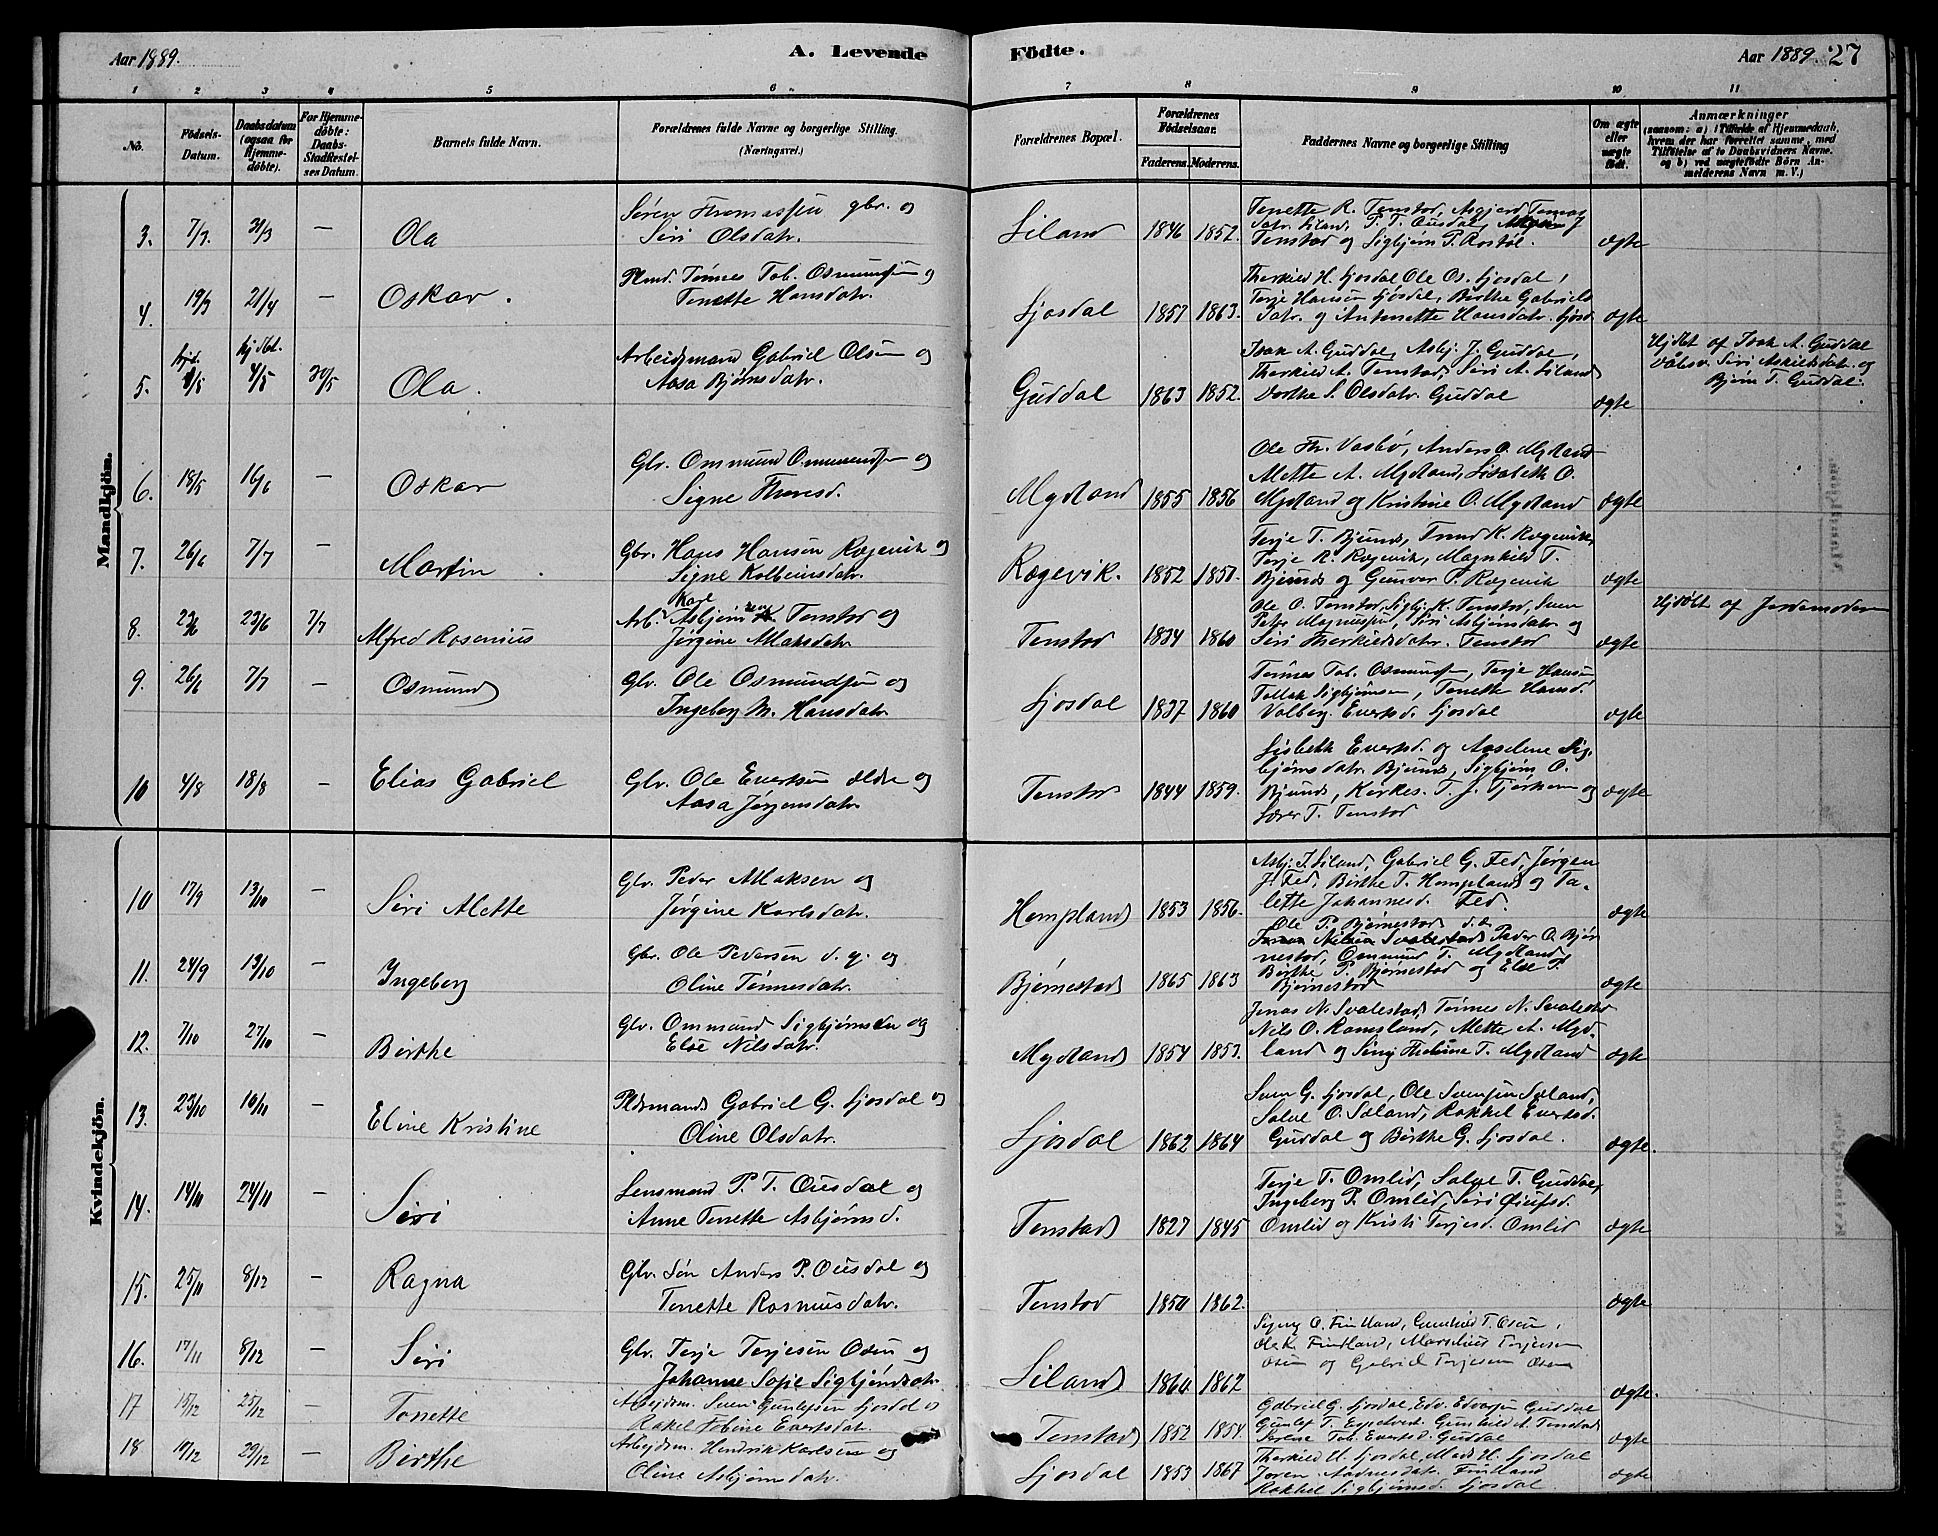 Aar 1889. A. Levende Fødte. Aar 1889. 27
1 2 3 4 5 6 7 8 9 10 11
No. Födsels-Datum. Daabsdatum (ogsaa for Hjemmedøbte). For Hjemmedøbte: Daabs-Stadfæstelses Datum. Barnets fulde Navn. Forældrenes fulde Navne og borgerlige Stilling. (Næringsvei.) Forældrenes Bopæl. Forældrenes Fødselsaar. Faderens. Moderens. Faddernes Navne og borgerlige Stilling Om ægte eller uægte født. Anmærkninger (saasom: a) i Tilfælde af Hjemmedaab, hvem der har forrettet samme, med Tilføielse af to Daabsvidners Navne, og b) ved uægtefødte Börn Anmelderens Navn m. V.)
Mandkjön.
3. 7/3. 31/3 — Ola
Søren Thomassen gbr. og
Siri Olsdatr.
Liland 1846 1852.
Tonette R. Tonstad, Asgjerd Tomas
datr. Liland, T. T. Ousdal,
Tonstad og Sigbjørn P. Rostøl. ægte
4. 19/3 21/4 — Oskar.
Plmd. Tønnes Tob. Osmundsen og
Tonette Hansdatr.
Ljosdal 1857 1863.
Therkild H. Ljosdal, Ole Os. Ljosdal,
Terje Hansen Ljosdal, Birthe Gabriels
datr. og Antonette Hansdatr. Ljosd. ægte
5. 4/5 hjdbt. 4/5 30/5 Ola.
Arbeidsmand Gabriel Olsen og
Aasa Bjørnsdatr.
Guddal 1863 1852.
Isak A. Guddal, Asbj. J. Guddal,
Therkild A. Tonstad, Siri A. Liland
Dorthe S. Olsdatr. Guddal ægte
Hjdbt af Isak A. Guddal
Siri Askildsdatr. og
Bjørn T. Guddal.
6. 18/5 16/6 — Oskar
Gbr. Ommund Ommundsen og
Signe Thoresd.
Mydland 1855 1856
Ole Th. Vasbø, Anders O. Mydland
Mette A. Mydland, Lisabeth O.
Mydland og Kristine O. Mydland ægte
7. 26/6 7/7 — Martin.
Gbr. Hans Hansen Rægevik og
Signe Kolbeinsdatr.
Rægevik. 1852 1851.
Terje T. Bjunes, Trond K. Rægevik,
Terje R. Rægevik, Magnhild T.
Bjunes og Gunvor P. Rægevik ægte
8. 23/6 23/6 7/7 Alfred Rosenius
Karl
Arb. Asbjørnsen Tonstad og
Jørgine Maksdatr.
Tonstad 1834 1860
Ole O. Tonstad, Sigbj. K. Tonstad, Sven
Petr Magnussen, Siri Asbjørnsdatr og
Siri Therkildsdatr. Tonstad ægte
Hjdøbt af Jordemoderen
9. 26/6 7/7 — Osmund
Gbr. Ole Osmundsen og
Ingeborg M. Hansdatr.
Ljosdal 1837 1860
Tønnes Tob. Osmunds., Terje Hansen
Tollak Sigbjørnsen, Tonette Hansd.
Valborg Evertsd. Ljosdal ægte
10 4/8 18/8 — Elias Gabriel
Gbr. Ole Evertsen ældre og
Aasa Jørgensdatr.
Tonstad 1844 1859.
Lisbeth Evertsd. og Aaselene Sig-
bjørnsdatr. Bjunes, Sigbjørn O.
Bjunes, Kirkes. T. J. Tjorhom og
Lærer T. Tonstad ægte
Kvindekjön.
10 17/9 13/10 — Siri Alette
Gbr. Peder Maksen og
Jørgine Karlsdatr.
Hompland 1853 1856.
Asbj. J. Liland, Gabriel G. Fed, Jørgen
J. Fed, Birthe T. Hompland og Ta-
lette Johannesd. Fed. ægte
11. 24/9 13/10 — Ingeborg
Gbr. Ole Pedersen d. y. og
Oline Tønnesdatr.
Bjørnestad 1865 1863
Ole P. Bjørnestad d. æ.
Svalestad, Peder O. Bjør
nestad, Ommund T. Mydland,
Birthe P. Bjørnestad og Else P.
Bjørnestad ægte
12. 7/10 27/10 — Birthe
Gbr. Ommund Sigbjørnsen og
Else Nilsdatr.
Mydland 1854 1853.
Jonas N. Svalestad, Tønnes N. Svalestad
Nils O. Ramsland, Mette A. Myd-
land og Siny Thomine T. Mydland ægte
13. 23/10 10/11 — Eline Kristine
Pldsmand Gabriel G. Ljosdal og
Oline Olsdatr.
Ljosdal 1862 1864
Sven G. Ljosdal, Ole Svensen Seland,
Salve O. Seland, Rakkel Evertsd.
Guddal og Birthe G. Ljosdal. ægte.
14. 14/11 24/11 — Siri
Lensmand P. T. Ousdal og
Anne Tonette Asbjørnsd.
Tonstad 1827 1845
Terje T. Omlid, Salve T. Guddal,
Ingeborg P. Omlid, Siri
Omlid og Kristi Terjesd. Omlid ægte
15. 25/11 8/12 — Ragna
Gbr. Søn Anders P. Ousdal og
Tonette Rasmusdatr.
Tonstad 1850 1862. ægte
16. 17/11 8/12 — Siri
Gbr. Terje Terjesen Osen og
Johanne Sofie Sigbjørnsdatr.
Liland 1860 1862
Signy O. Fintland, Gunhild T. Osen,
Ole K. Fintland, Marselius Terjesen
Osen og Gabriel Terjesen Osen ægte.
17 15/12 25/12 — Tonette
Arbeidsm. Sven Gunlefsen Ljosdal og
Rakel Tobine Evertsdatr.
Tonstad 1852 1854.
Gabriel G. Ljosdal, Edv. Edvarsen Guddal
Gunlef T. Espetveit, Gunhild A. Tonstad
Serene Tob. Evertsd. Guddal ægte
18 19/12 29/12 — Birthe
Arbejdsm. Hendrik Karlsen og
Oline Asbjørnsdatr.
Ljosdal 1853 1867
Therkild H. Ljosdal, Mads H. Ljosdal
Joren Aadnesdatr. Fintland
Rakkel Sigbjørnsd. Ljosdal. ægte